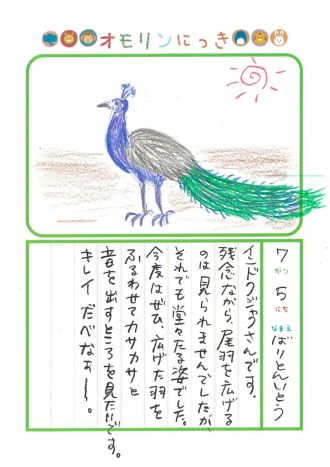 オモリンにっき
7がつ5にち なまえ ばりとんいとう
インドクジャクさんです。
残念ながら、尾羽を広げる
のは見られませんでしたが、
それでも堂々たる姿でした。
今度はぜひ、広げた羽を
ふるわせてカサカサと
音を出すところを見たいです。
キレイだべなぁ〜。